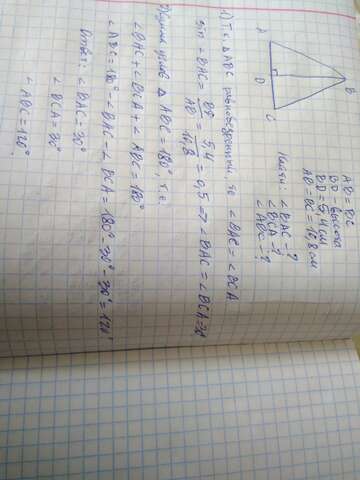 A
D
C
B
AB = BC
BD высота
BD = 5,4 см
AB = BC = 10,8 см
Найти: ∠BAC - ?
∠BCA - ?
∠ABC - ?
1) Т.к. △ABC равнобедренный, то ∠BAC = ∠BCA
sin ∠BAC = BD/AB = 5,4/10,8 = 0,5 => ∠BAC = ∠BCA = 30
2) Сумма углов △ ABC = 180°, т.е.
∠BAC + ∠BCA + ∠ABC = 180°
∠ABC = 180° - ∠BAC - ∠BCA = 180° - 30° - 30° = 120°
Ответ: ∠BAC = 30°
∠BCA = 30°
∠ABC = 120°.